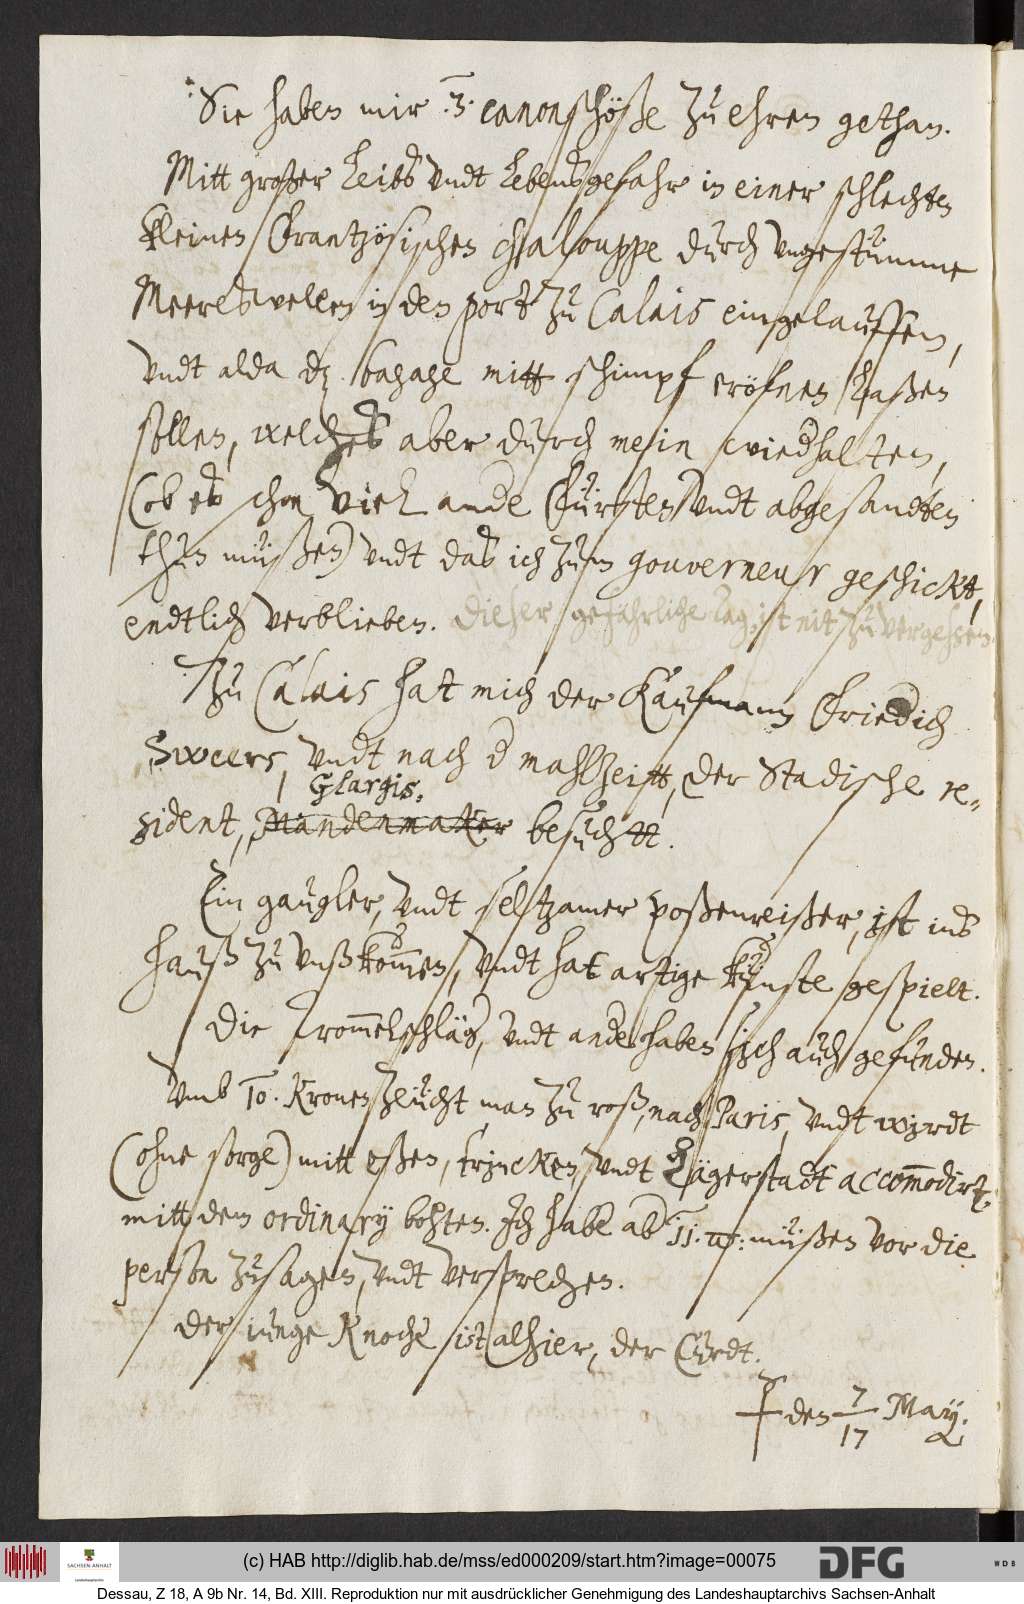 Sie haben mir .3. canonschöße zu ehren gethan.
Mitt großer Leibs vndt Lebensgefahr in einer schlechten
kleinen Frantzösischen chalouppe durch vngestümme
Meereswellen in den port zu Calais eingelauffen,
vndt alda dz bagage mitt schimpf eröfnen laßen
sollen, welches aber durch mein wiedhalten,
(ob es schon viel ande Fürsten vndt abgesandten
thun müßen) vndt das ich zum gouverneur geschickt,
endtlich verblieben. Dieser gefährliche Tag, ist nit zu vergessen.
Zu Calais hat mich der Kaufmann Friedich
Sweers, vndt nach d mahlzeitt, der Stadische re-
Glargis.
sident, Mandenmaker besuchtt.
Ein gaugler, vndt seltzamer poßenreißer, ist ins
hauß zu vnß kommen, vndt hat artige künste gespielt.
Die Trommelschläg, vndt ande haben sich auch gefunden.
Vmb 10. Kronen zeucht man zu roß, nach Paris, vndt wirdt
(ohne sorge) mitt eßen, trincken, vndt Lägerstadt accommodirt,
mitt dem ordinarij bohten. Ich habe ab 11. müßen vor die
person zusagen, vndt versprechen.
Der iunge Knoche ist alhier, der Curdt.
den 7/17 May.
(c) HAB http://diglib.hab.de/mss/ed000209/start.htm?image=00075
SACHSEN-ANHALT
DFG
WDB
Dessau, Z 18, A 9b Nr. 14, Bd. XIII. Reproduktion nur mit ausdrücklicher Genehmigung des Landeshauptarchivs Sachsen-Anhalt